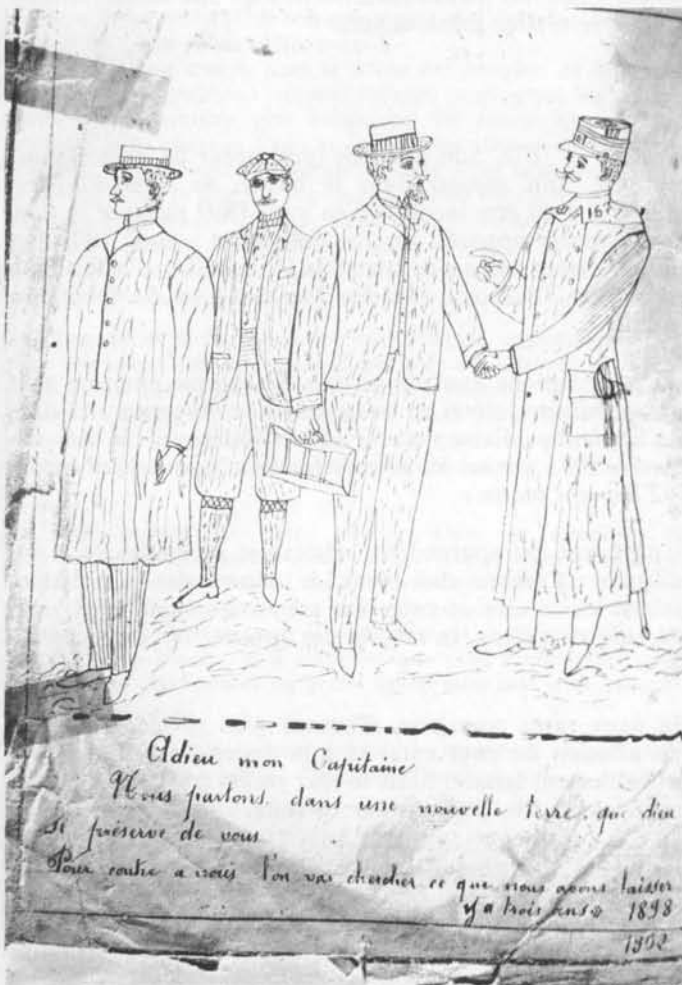 16
Adieu mon Capitaine
Nous partons dans une nouvelle terre que dieu
se préserve de vous
Pour contre a nous l'on vas chercher ce que nous avons laisser
y a trois ans 1898
1902